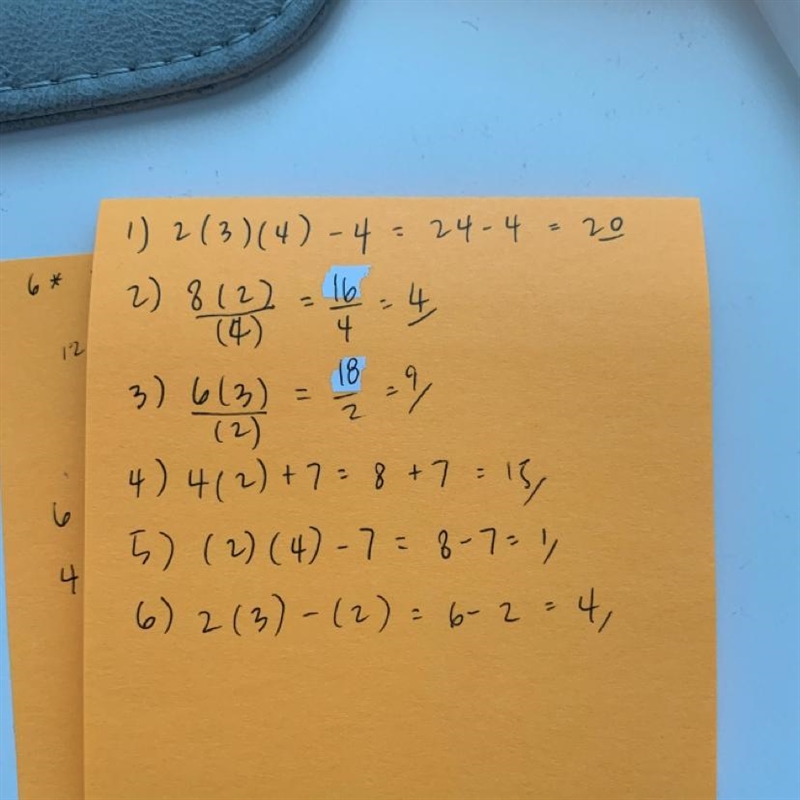 1) 2(3)(4) - 4 = 24 - 4 = 20
2) 8(2)/(4) = 16/4 = 4
3) 6(3)/(2) = 18/2 = 9
4) 4(2) + 7 = 8 + 7 = 15
5) (2)(4) - 7 = 8 - 7 = 1
6) 2(3) - (2) = 6 - 2 = 4
6 *
12
6
4